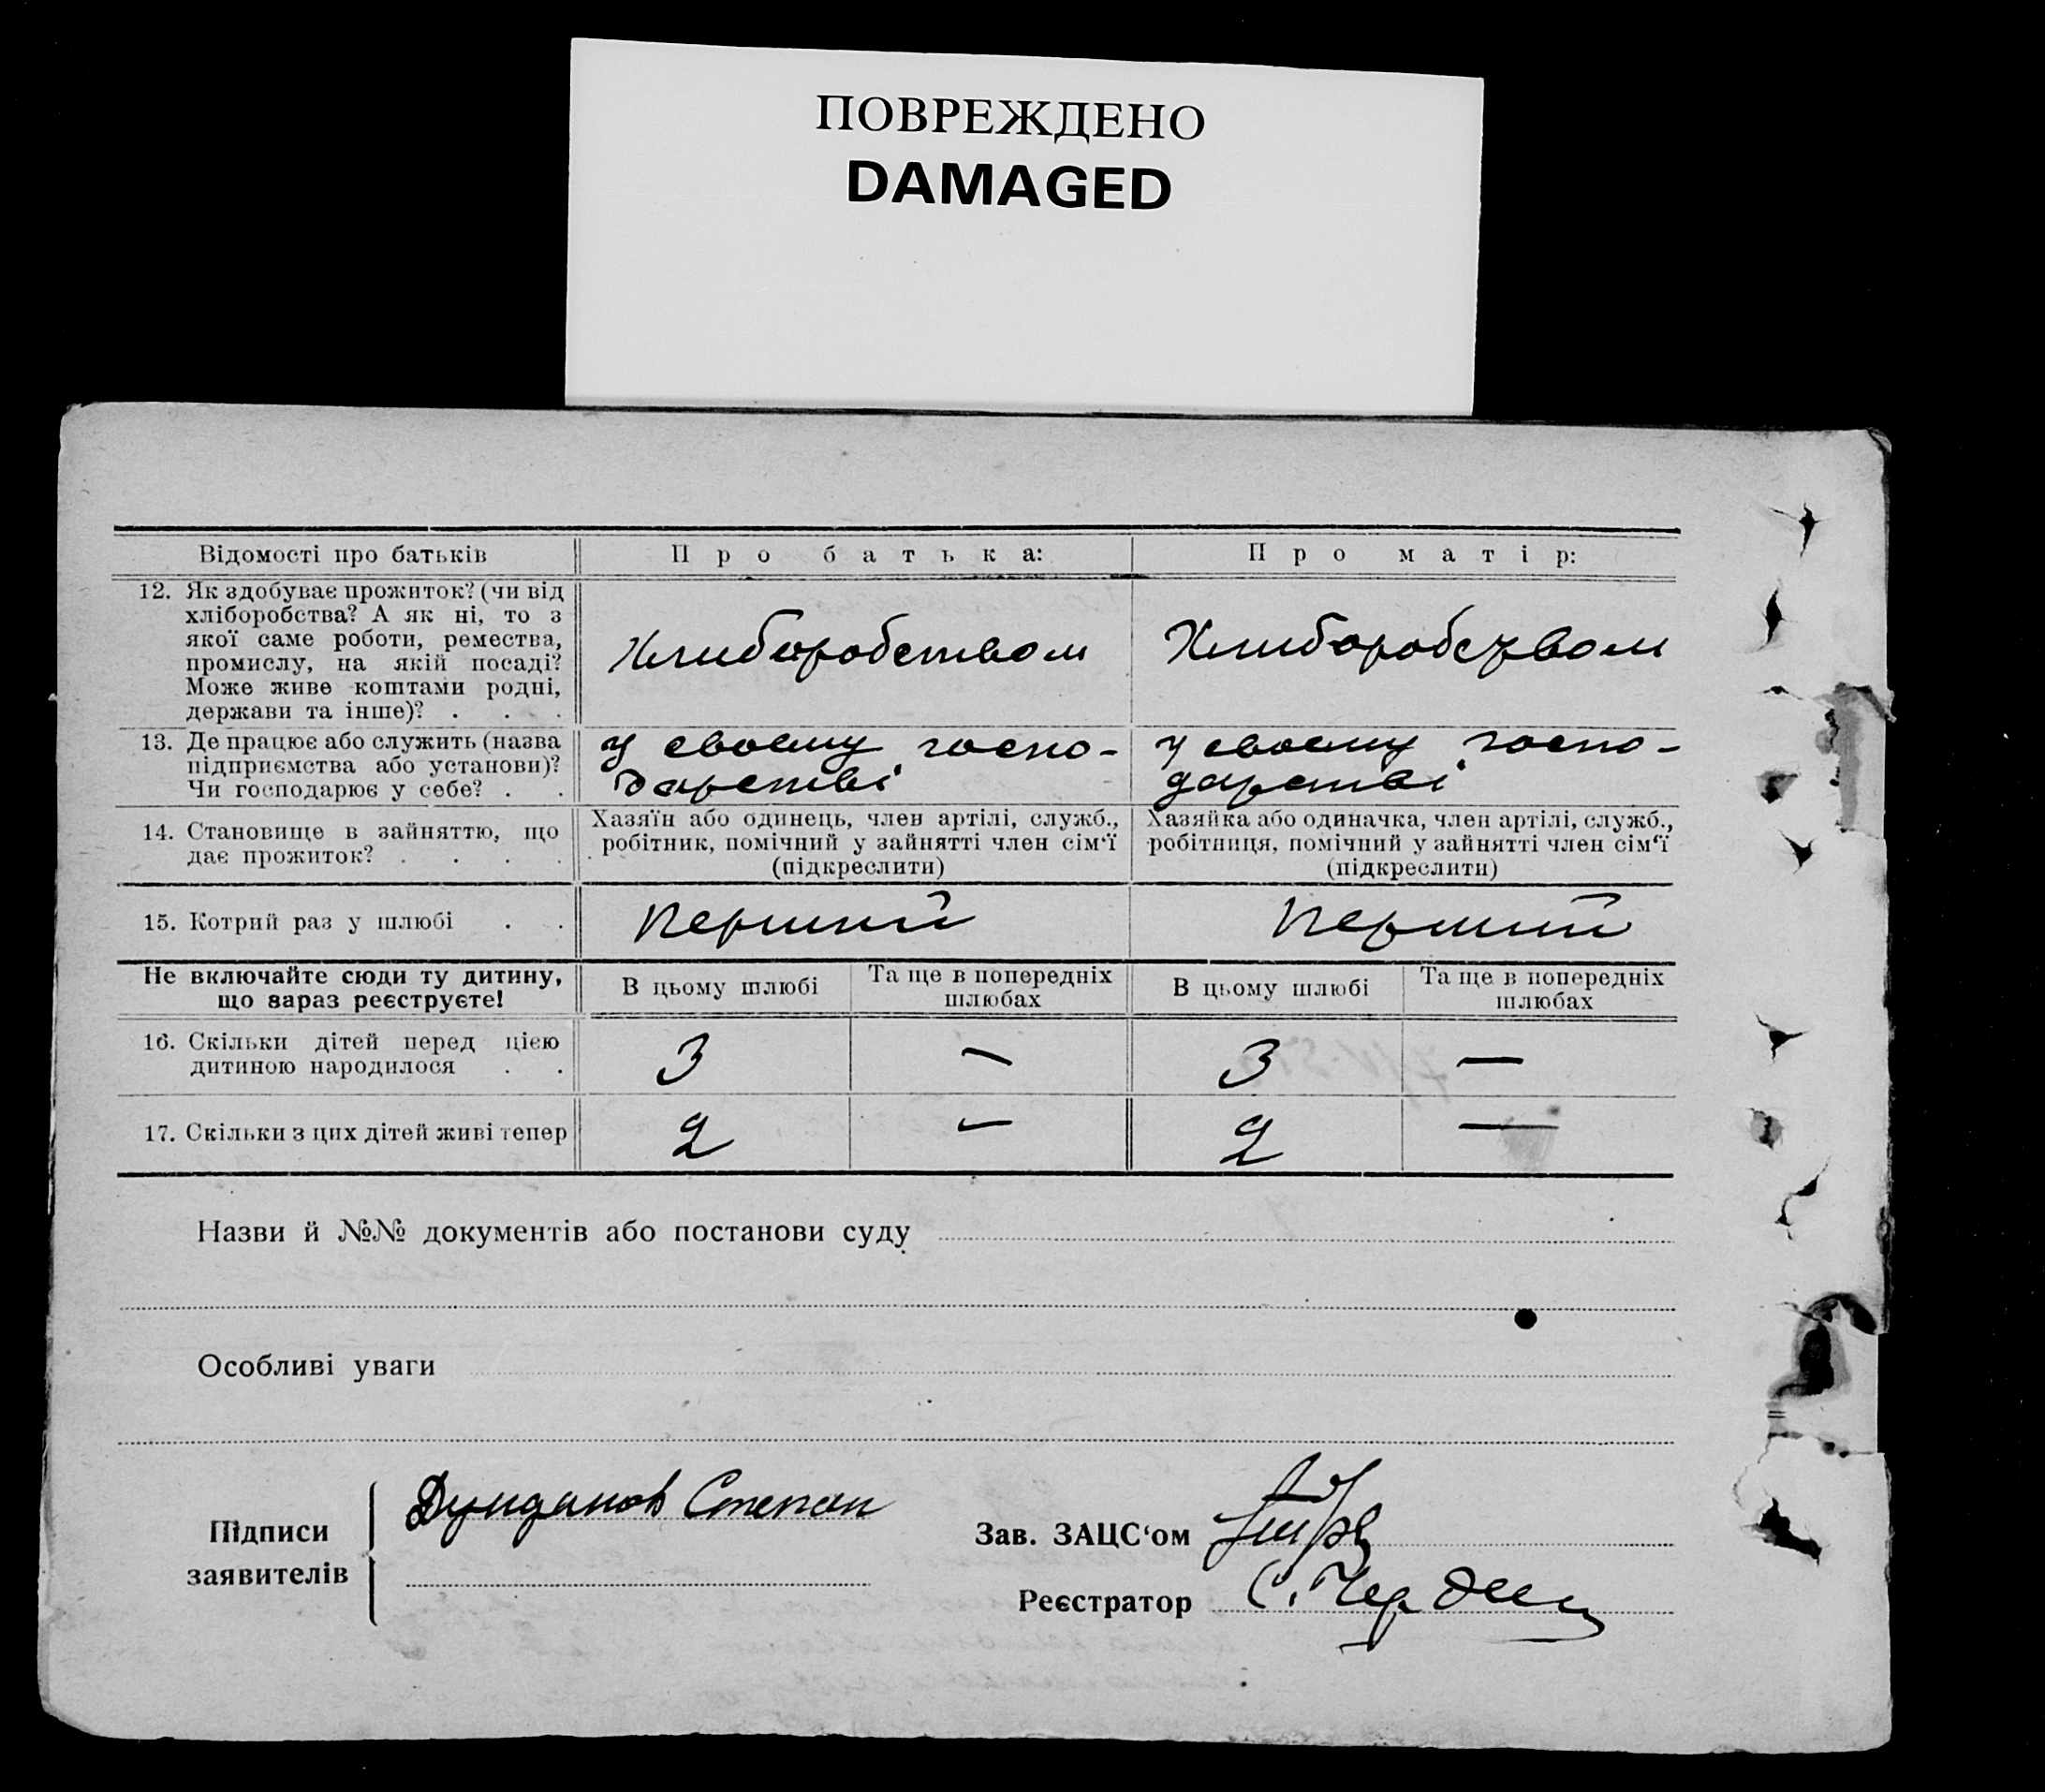 ПОВРЕЖДЕНО
DAMAGED
Відомості про батьків
Про батька:
Про матір:
12. Як здобуває прожиток? (чи від
хліборобства? А як ні, то з
якої саме роботи, ремества,
промислу, на якій посаді?
Може живе коштами родні,
держави та інше)? . . .
Хлиборобством
Хлиборобством
13. Де працює або служить (назва
підприємства або установи)?
Чи господарює у себе? . .
у своєму госпо-
дарстві
у своєму госпо-
дарстві
14. Становище в зайняттю, що
дає прожиток? . . . .
Хазяїн або одинець, член артілі, служб.,
робітник, помічний у зайнятті член сім‘ї
(підкреслити)
Хазяйка або одиначка, член артілі, служб.,
робітниця, помічний у зайнятті член сім‘ї
(підкреслити)
15. Котрий раз у шлюбі . .
Перший
Перший
Не включайте сюди ту дитину,
що зараз реєструєте!
В цьому шлюбі
Та ще в попередніх
шлюбах
В цьому шлюбі
Та ще в попередніх
шлюбах
16. Скільки дітей перед цією
дитиною народилося . .
3
—
3
—
17. Скільки з цих дітей живі тепер
2
—
2
—
Назви й №№ документів або постанови суду
Особливі уваги
Підписи
заявителів
Степан
Зав. ЗАЦС‘ом
Реєстратор